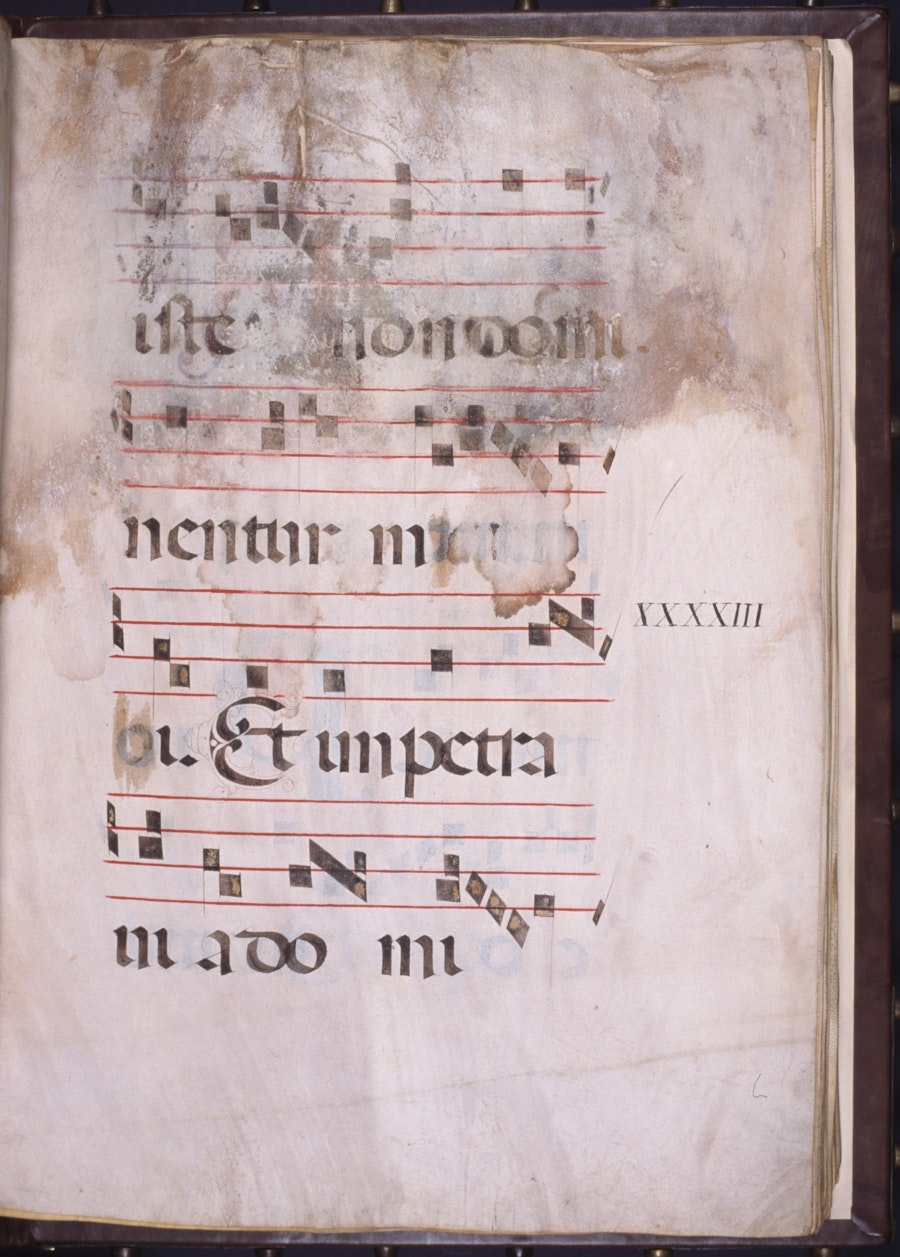 iste non domi
nentur m
XXXXIII
ou. Et impetra
in a do mi